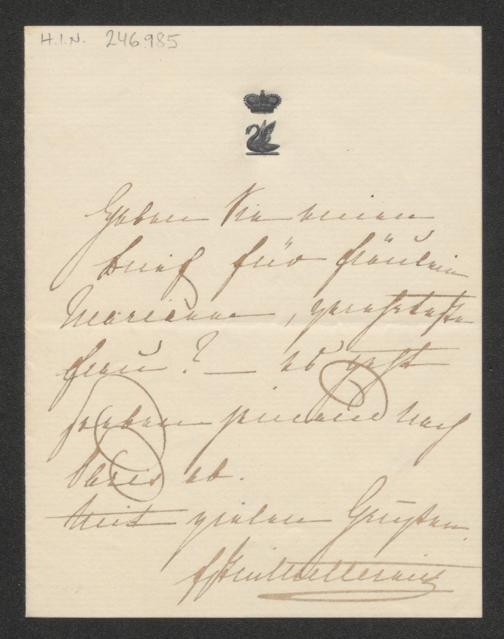 H.I.N. 246.985
Haben Sie einen
Brief für Fräulein
Marianne, verehrteste
Frau? — es geht
soeben jemand nach
Paris ab.
Mit vielen Grüßen